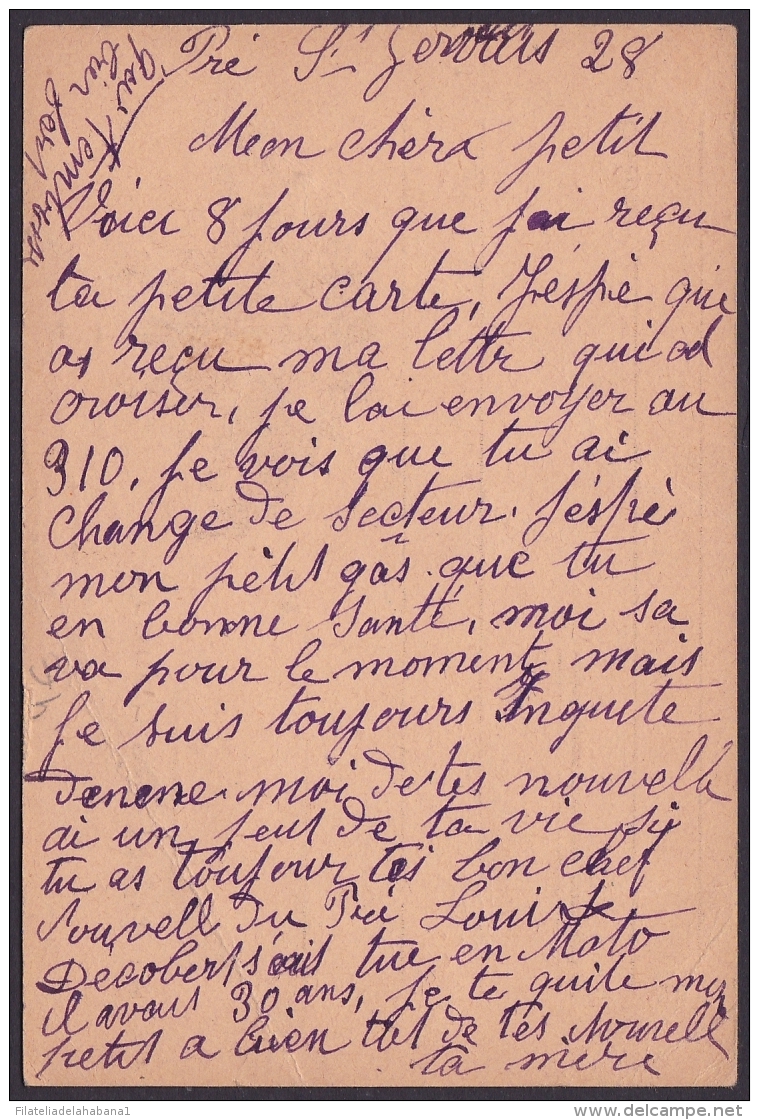 Pré St Gervais 28
Mon chèrx petit
Voici 8 jours que j'ai reçu
ta petite carte, J'éspè que
as reçu ma lettr qui ad
croiser, je lai envoyer au
310, je vois que tu ai
change de secteur. j'éspè
mon pétit gâs que tu
en bonne santé, moi sa
va pour le moment, mais
je suis toujours Inquete
moi de tes nouvelle
ai un peut de ta vie si
tu as toujour tes bon chef
Nouvell du Pré Louis
Decobert s'ait tue en Moto
il avais 30 ans, je te quite mon
petit a bien tot de tes Nouvell
ta mère
qui t'embrasse
bien fort
Filateliadelahabana1
PICTURES BY delcampe.net